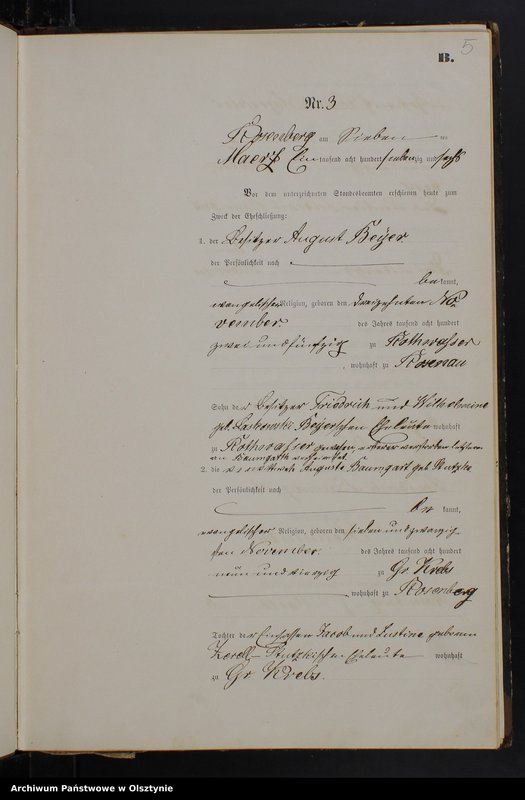 5
B.
Nr. 3
Rosenberg am Sieben ten
Maerz Ein tausend acht hundert siebenzig und sechs
Vor dem unterzeichneten Standesbeamten erschienen heute zum
Zweck der Eheschließung:
1. der Besitzer August Beÿer.
der Persönlichkeit nach
be kannt,
evangelischer Religion, geboren den dreizehnten No
vember. des Jahres tausend acht hundert
zwei und fünfzig zu Rothwasser
, wohnhaft zu Rosenau
Sohn der Besitzer Friedrich und Wilhelmine
geb. Beÿerschen Eheleute wohnhaft
zu Rothwasser
2. die Auguste Baumgart geb.
der Persönlichkeit nach
be kannt,
evangelischer Religion, geboren den sieben und zwanzig
sten November. des Jahres tausend acht hundert
neun und vierzig zu Gr Krebs
, wohnhaft zu Rosenberg
Tochter der Einsassen Jacob und Justine geboren
Eheleute wohnhaft
zu Gr Krebs.
Archiwum Państwowe w Olsztynie